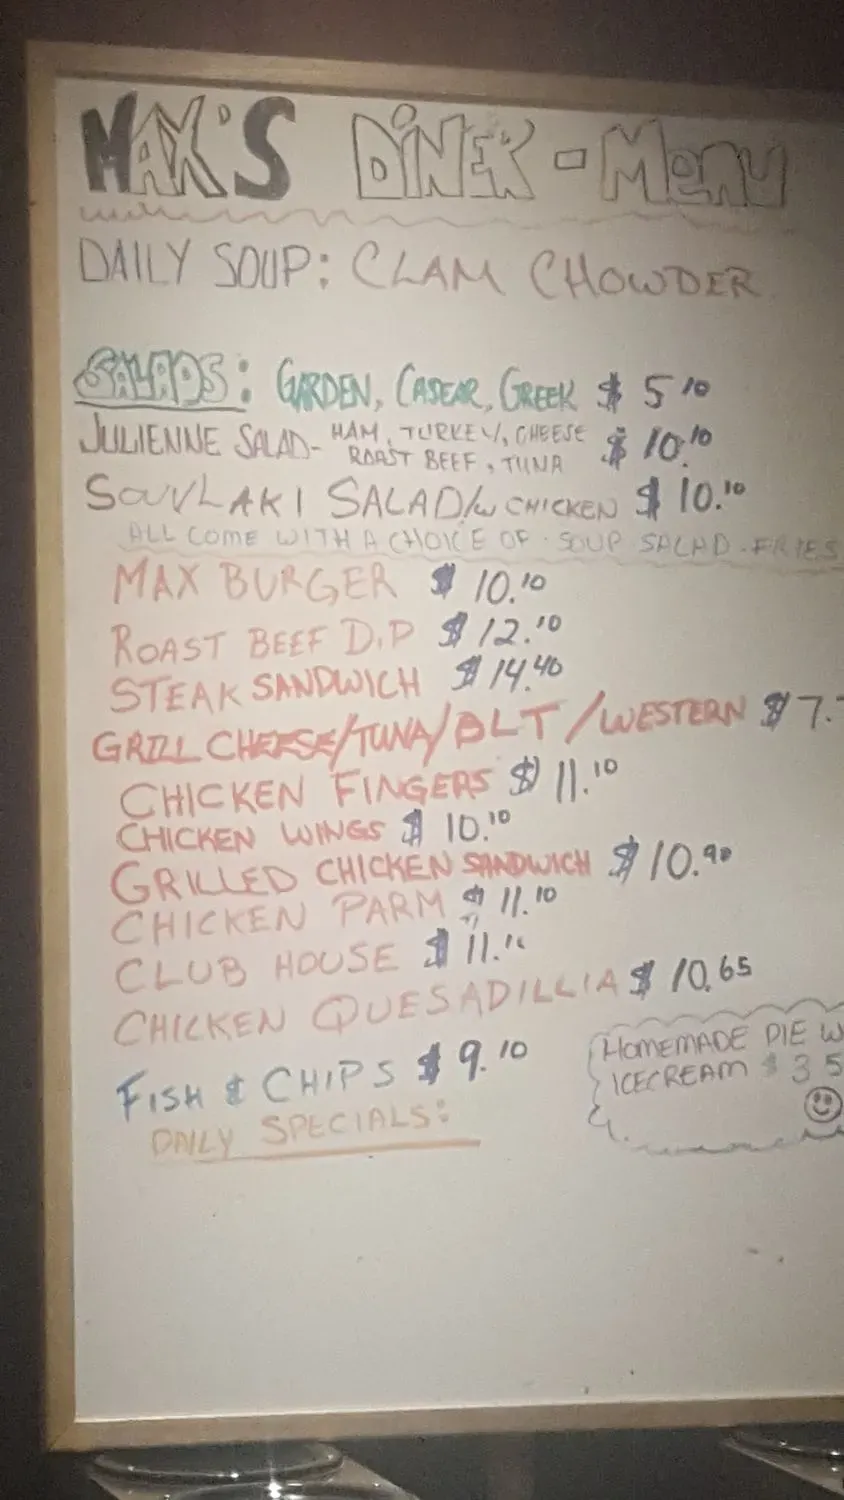 MAX'S DINER - MENU
DAILY SOUP: CLAM CHOWDER
SALADS: GARDEN, CASEAR, GREEK $ 5 10
JULIENNE SALAD- HAM, TURKEY, CHEESE $ 10.10
ROAST BEEF, TUNA
SOUVLAKI SALAD/W CHICKEN $ 10.10
ALL COME WITH A CHOICE OF - SOUP SALAD - FRIES
MAX BURGER $ 10.10
ROAST BEEF DIP $ 12.10
STEAK SANDWICH $ 14.40
GRILL CHEESE/TUNA/BLT/WESTERN $ 7.
CHICKEN FINGERS $ 11.10
CHICKEN WINGS $ 10.10
GRILLED CHICKEN SANDWICH $ 10.90
CHICKEN PARM $ 11.10
CLUB HOUSE $ 11.
CHICKEN QUESADILLIA $ 10.65
FISH & CHIPS $ 9.10
HOMEMADE PIE W
ICECREAM $ 3 5
DAILY SPECIALS: